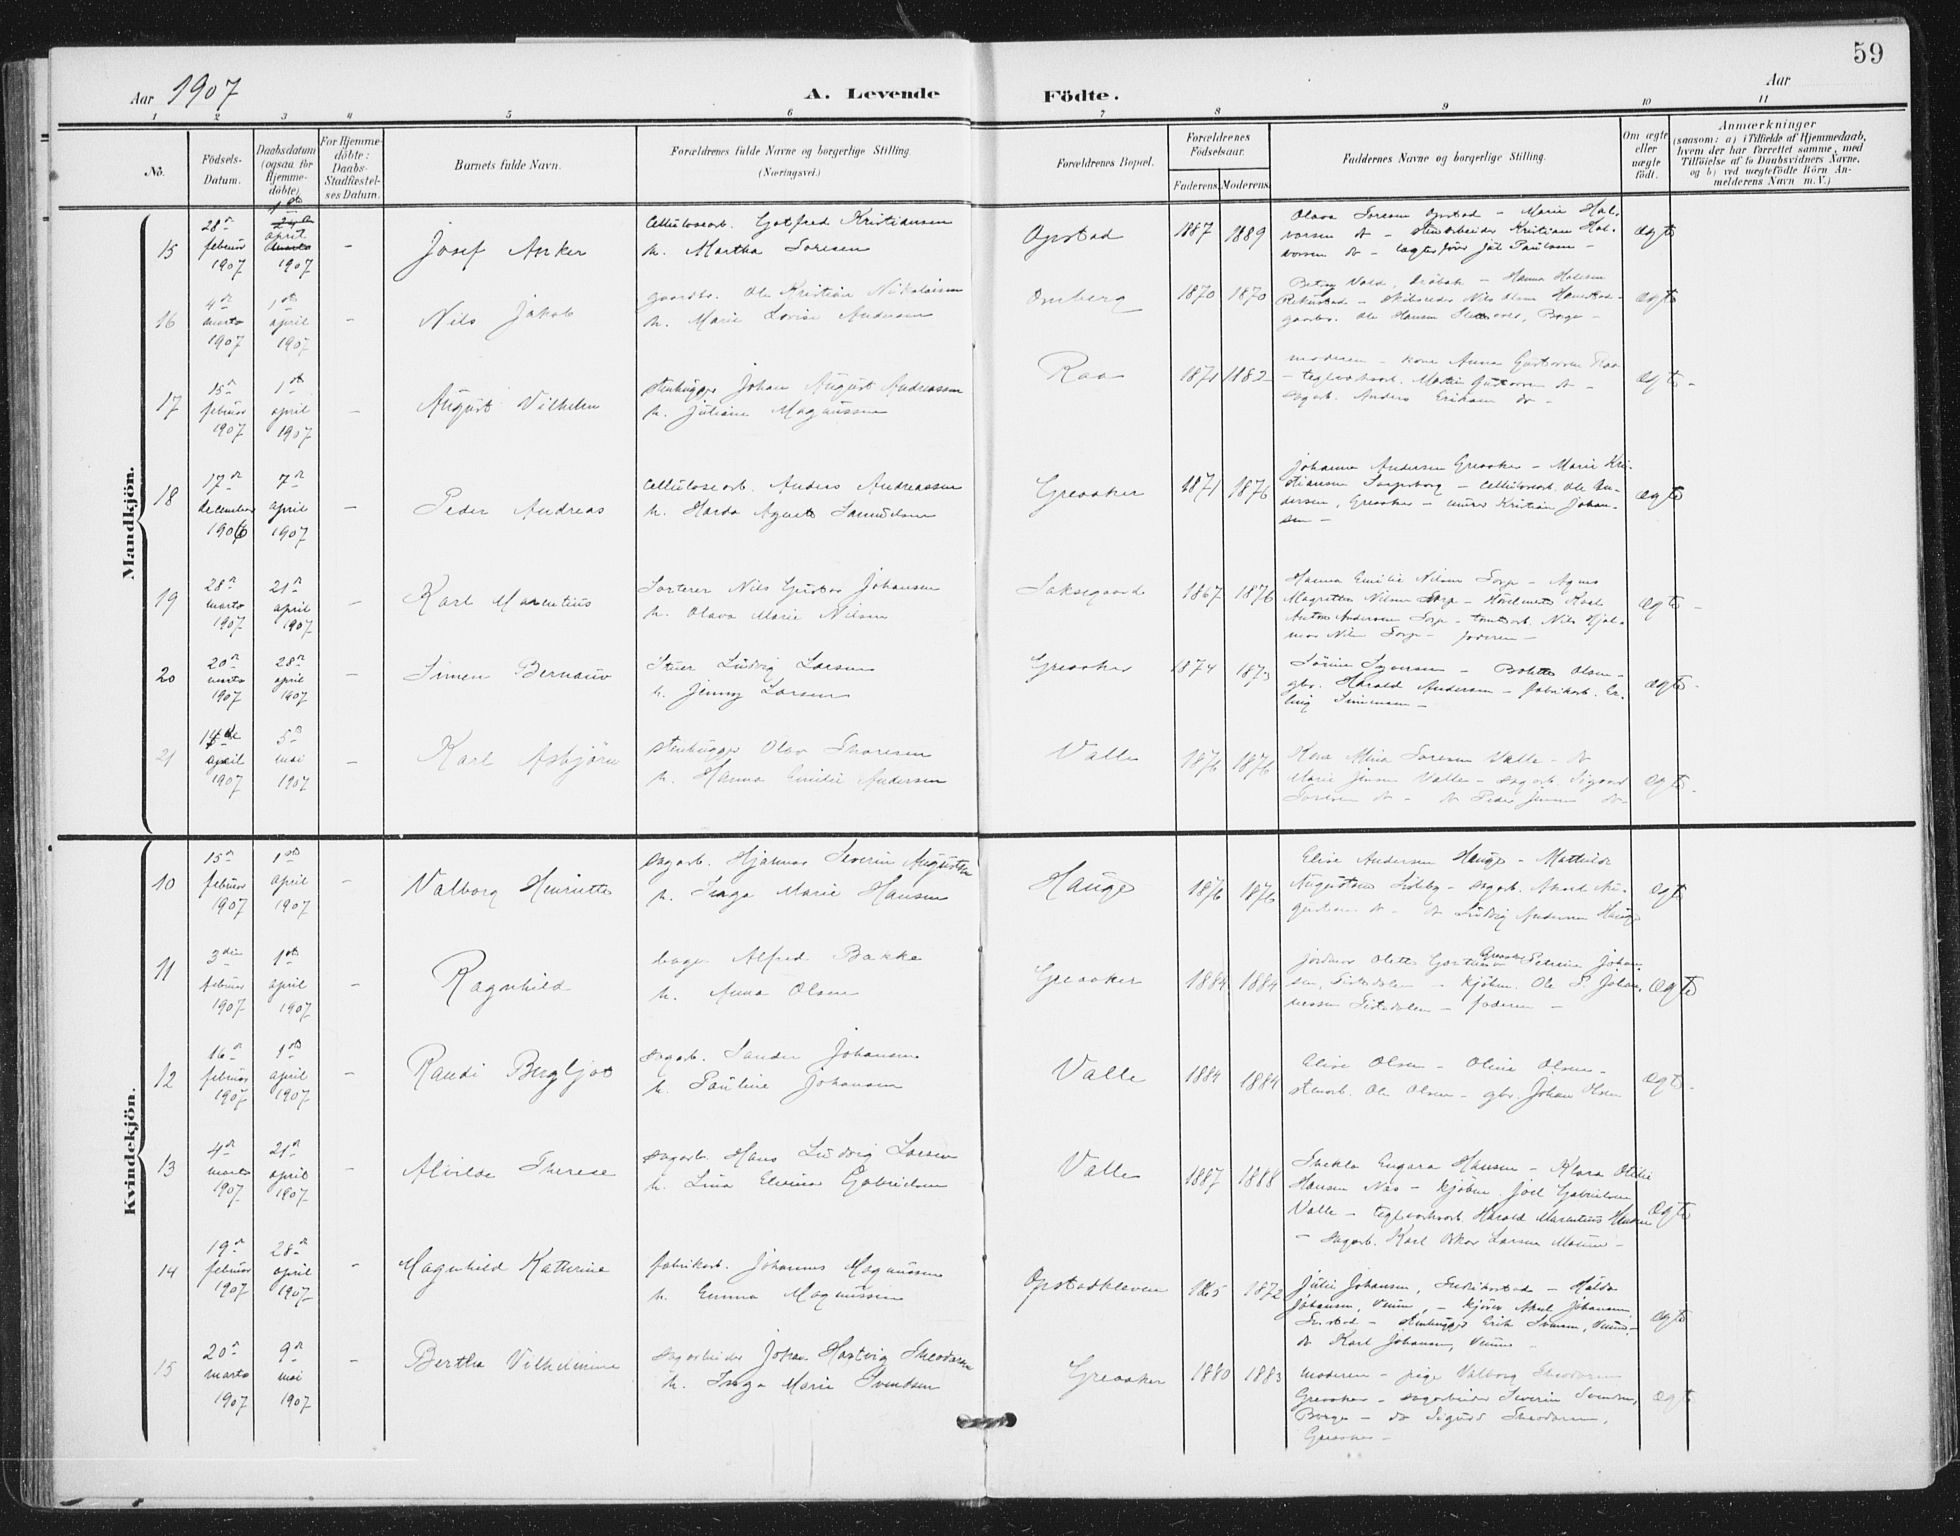 59
Aar 1907 A. Levende Födte. Aar
1 2 3 4 5 6 7 8 9 10 11
No. Födsels-Datum. Daabsdatum (ogsaa for Hjemme-döbte) For Hjemme-döbte: Daabs-Stadfæstel-ses Datum. Barnets fulde Navn. Forældrenes fulde Navne og borgerlige Stilling (Næringsvei.) Forældrenes Bopæl. Forældrenes Födselsaar. Faderens. Moderens. Faddernes Navne og borgerlige Stilling. Om ægte eller uægte födt. Anmærkninger (saasom: a) i Tilfælde af Hjemmedaab, hvem der har forrettet samme, med Tilföielse af to Daabsvidners Navne, og b) ved uægtefödte Börn An-melderens Navn m.V.)
Mandkjön.
15 28de februar 1907 1ste april 1907 - Josef Anker Cellulosearb. Gotfred Kristiansen
h. Martha Soresen Opstad 1887 1889 Olava Soresen Opstad - Marie Hal-
vorsen do - stenarbeider Kristian Hal-
vorsen do - Paulsen - ægte
16 4de marts 1907 1ste april 1907 - Nils Jakob gaardbr. Ole Kristian Nikolaisen
h. Marie Lovise Andersen Omberg 1870 1870 Vold, Drøbak - Hanna
Nils Olsen
gaardbr. Ole Hansen Borge - ægte
17 15de februar 1907 1ste april 1907 - August Vilhelm stenhugger Johan August Andreassen
h. Juliane Magnussen Raa 1871 1882 moderen - kone Anna Gustavsen Raa
- teglverksarb. Martin Gustavsen do -
sagarb. Anders Eriksen do - ægte -
18 17de december 1906 7de april 1907 - Peder Andreas Celluloseorb. Anders Andreassen
h. Harda Agnete Samuelsen Greaaker 1871 1876 Johanna Andersen Greaaker - Marie Kri-
stiansen Sarpsborg - Celluloseorb. Ole An-
dersen, Greaaker - murer Kristian Johan-
sen - ægte
19 28de marts 1907 21de april 1907 - Karl Marentius Sorterer Nils Gustav Johansen
h. Olava Marie Nilsen Laksegaard 1867 1876 Hanna Emilie Nilsen Sorp - Agnes
Magrethe Nilsen Sorp - Karl
Anton Andersen Sorp - tomtearb. Nils Hjal-
mar Nilsen Sorp - faderen - ægte -
20 20de marts 1907 28de april 1907 - Simen Bernauw Stuer Ludvig Larsen
h. Jenny Larsen Greaaker 1874 1873 Sörine Syversen - Bolette Olsen -
gbr. Harald Andersen - fabrikarb. Er-
ling Simensen - ægte -
21 14de april 1907 5te mai 1907 - Karl Asbjörn stenhugger Olav Thoresen
h. Hanna Emilie Andersen Valle 1876 1876 Kone Mina Soresen Valle - do
Marie Jensen Valle - sagarb. Sigvard
Soresen do - do Peder Jensen do ægte -
Kvindekjön.
10 15de februar 1907 1ste april 1907 - Valborg Henriette sagarb. Hjalmar Severin Augustsen
h. Inga Marie Hansen Hauge 1876 1876 Elise Andersen Hauge - Mathilde
Augustsen - sagarb. Au-
gustsen do - do Ludvig Andersen Hauge ægte
11 3die februar 1907 1ste april 1907 - Ragnhild bager Alfred Bakke
h. Anna Olsen Greaaker 1884 1884 jordmor Olette Greaaker Petrine Johan-
sen, - kjøbm. Ole P. Johan-
nessen - faderen - ægte
12 16de februar 1907 1ste april 1907 - Randi Bergljot sagarb. Sander Johansen
h. Pauline Johansen Valle 1884 1884 Elise Olsen - Oline Olsen -
stenarb. Ole Olsen - gbr. Johan Olsen ægte -
13 4de marts 1907 21de april 1907 - Alvilde Therese sagarb. Hans Ludvig Larsen
h. Lina Elvina Gabrielsen Valle 1887 1888 Thekla Hansen - Klara Otilie
Hansen Næs - kjøbm. Joel Gabrielsen
Valle - teglverksarb. Harald Marentius Hansen
- sagarb. Karl Oskar Larsen - ægte
14 19de februar 1907 28de april 1907 - Magnhild Katherine fabrikarb. Johannes Magnussen
h. Emma Magnussen Opstadkleven 1865 1872 Julie Johansen, Fredrikstad - Hulda
Johansen, - Axel Johansen,
Fr.stad - stenhugger Erik
do Karl Johansen, ægte
15 20de marts 1907 9de mai 1907 - Bertha Vilhelmine sagarbeider Johan Hartvig Theodorsen
h. Inga Marie Svendsen Greaaker 1880 1883 moderen - pige Valborg Theodorsen
Greaaker - sagarbeider Severin Svendsen,
Borge - do Sigurd Theodorsen,
Greaaker - ægte